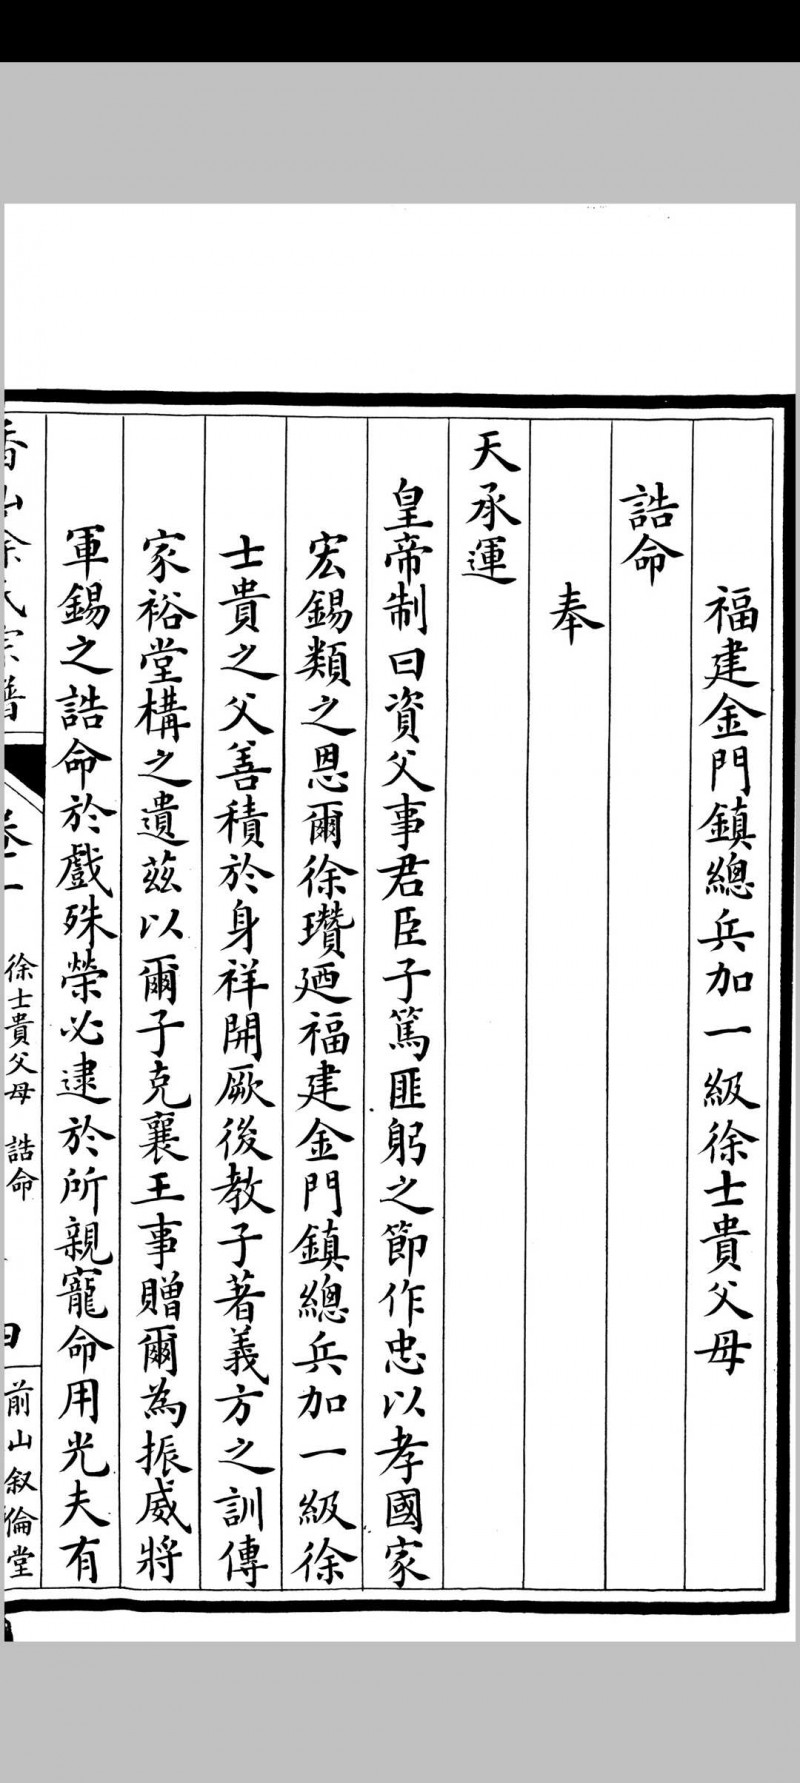 福建金門鎮總兵加一級徐士貴父母
誥命
奉
天承運
皇帝制曰資父事君臣子篤匪躬之節作忠以孝國家
宏錫類之恩爾徐瓚廼福建金門鎮總兵加一級徐
士貴之父善積於身祥開厥後教子著義方之訓傳
家裕堂構之遺茲以爾子克襄王事贈爾為振威將
軍錫之誥命於戲殊榮必逮於所親寵命用光夫有
香山徐氏宗譜
卷一 徐士貴父母 誥命
四
前山叙倫堂